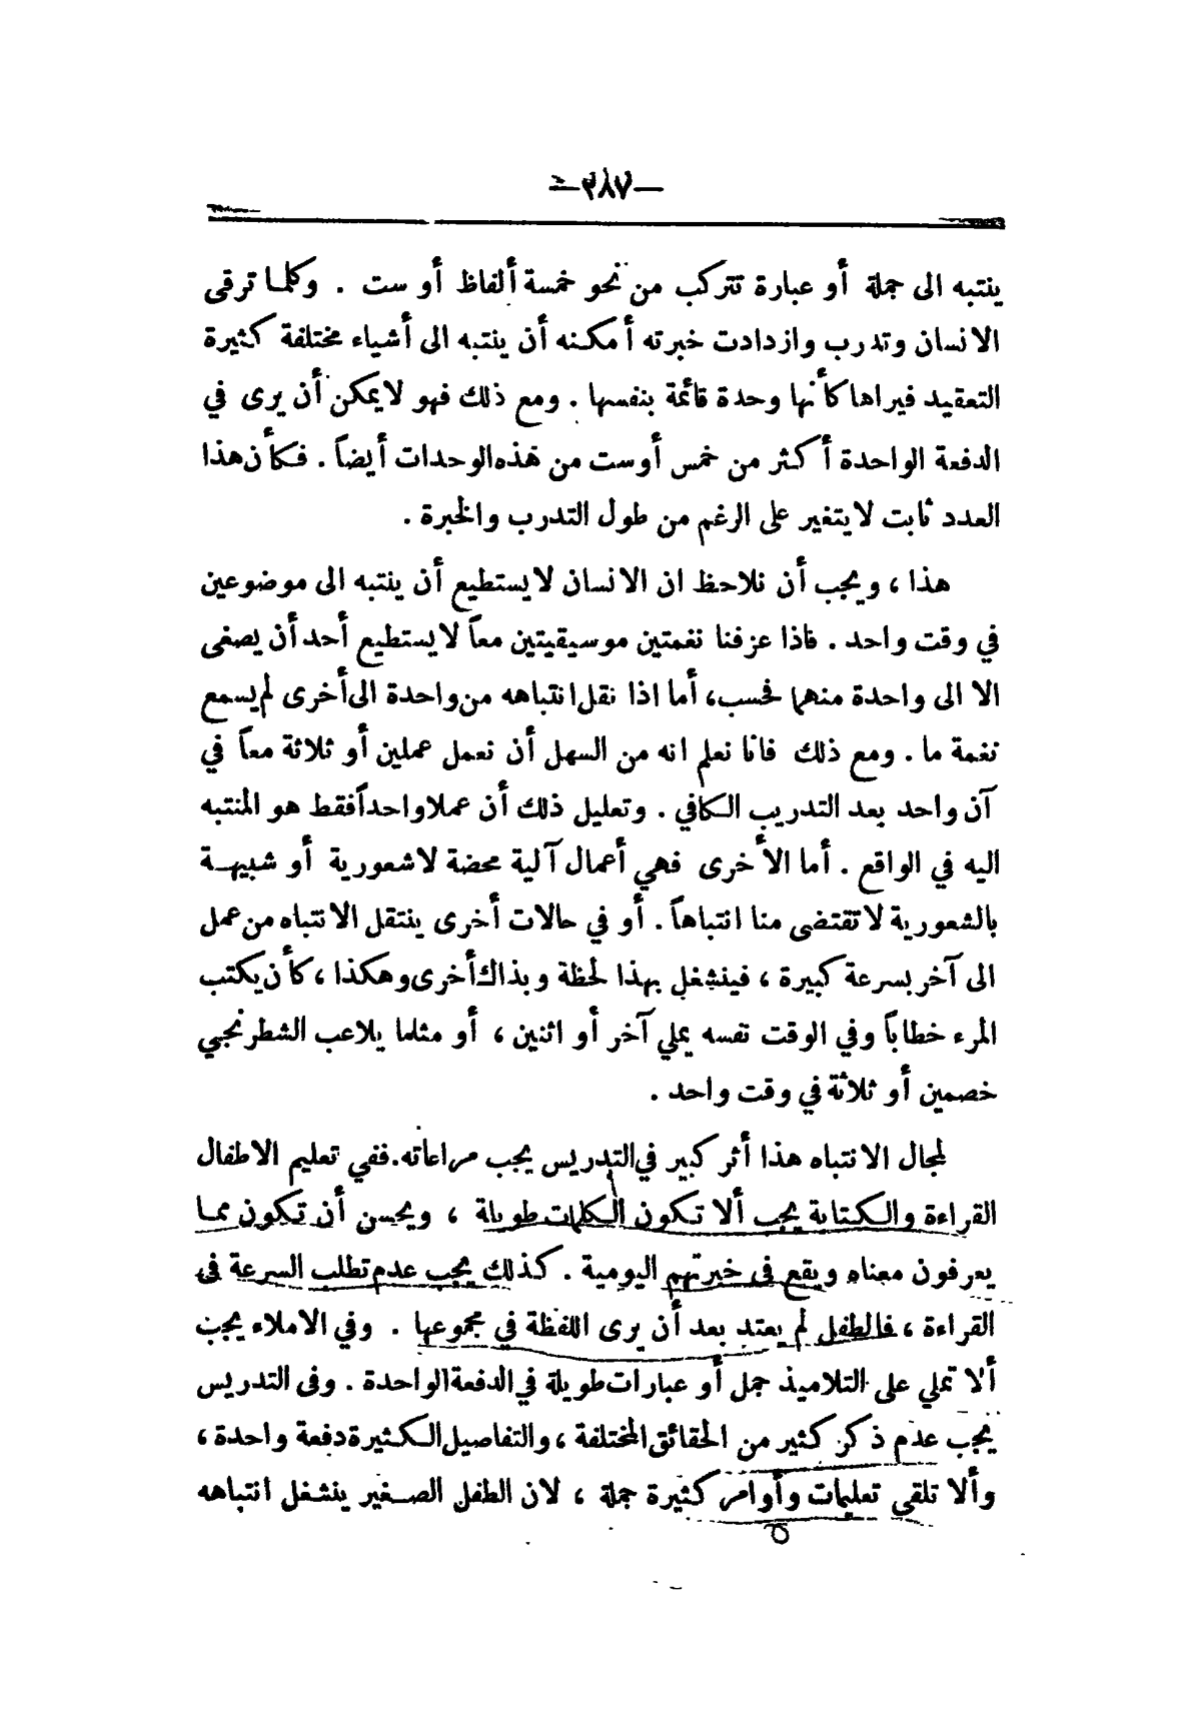 — ٣٨٧ —
ينتبه الى جملة أو عبارة تتركب من نحو خمسة ألفاظ أو ست . وكلما ترقى
الانسان وتدرب وازدادت خبرته أمكنه أن ينتبه الى أشياء مختلفة كثيرة
التعقيد فيراها كأنها وحدة قائمة بنفسها . ومع ذلك فهو لايمكن أن يرى في
الدفعة الواحدة أكثر من خمس أوست من هذه الوحدات أيضاً . فكأن هذا
العدد ثابت لايتغير على الرغم من طول التدرب والخبرة .
هذا ، ويجب أن نلاحظ ان الانسان لايستطيع أن ينتبه الى موضوعين
في وقت واحد . فاذا عزفنا نغمتين موسيقيتين معاً لايستطيع أحد أن يصغى
الا الى واحدة منهما فحسب، أما اذا نقل انتباهه من واحدة الى أخرى لم يسمع
نغمة ما . ومع ذلك فانا نعلم انه من السهل أن نعمل عملين أو ثلاثة معاً في
آن واحد بعد التدريب الكافي . وتعليل ذلك أن عملا واحداً فقط هو المنتبه
اليه في الواقع . أما الأخرى فهي أعمال آلية محضة لاشعورية أو شبيهة
بالشعورية لاتقتضى منا انتباهاً . أو في حالات أخرى ينتقل الانتباه من عمل
الى آخر بسرعة كبيرة ، فينشغل بهذا لحظة وبذاك أخرى وهكذا ، كأن يكتب
المرء خطاباً وفي الوقت نفسه يملي آخر أو اثنين ، أو مثلما يلاعب الشطرنجي
خصمين أو ثلاثة في وقت واحد .
لمجال الانتباه هذا أثر كبير في التدريس يجب مراعاته. ففي تعليم الاطفال
القراءة والكتابة يجب ألا تكون الكلمات طويلة ، ويحسن أن تكون مما
يعرفون معناه ويقع فى خبرتهم اليومية . كذلك يجب عدم تطلب السرعة فى
القراءة ، فالطفل لم يعتد بعد أن يرى اللفظة في مجموعها . وفي الاملاء يجب
ألا تملي على التلاميذ جمل أو عبارات طويلة في الدفعة الواحدة . وفى التدريس
يجب عدم ذكر كثير من الحقائق المختلفة ، والتفاصيل الكثيرة دفعة واحدة ،
وألا تلقى تعليمات وأوامر كثيرة جملة ، لان الطفل الصغير ينشغل انتباهه